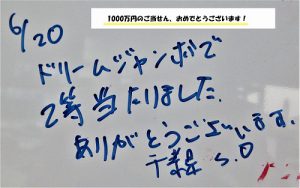 1000万円のご当せん、おめでとうございます！
6/20
ドリームジャンボで
2等当たりました.
ありがとうございます.
千葉県 S.O